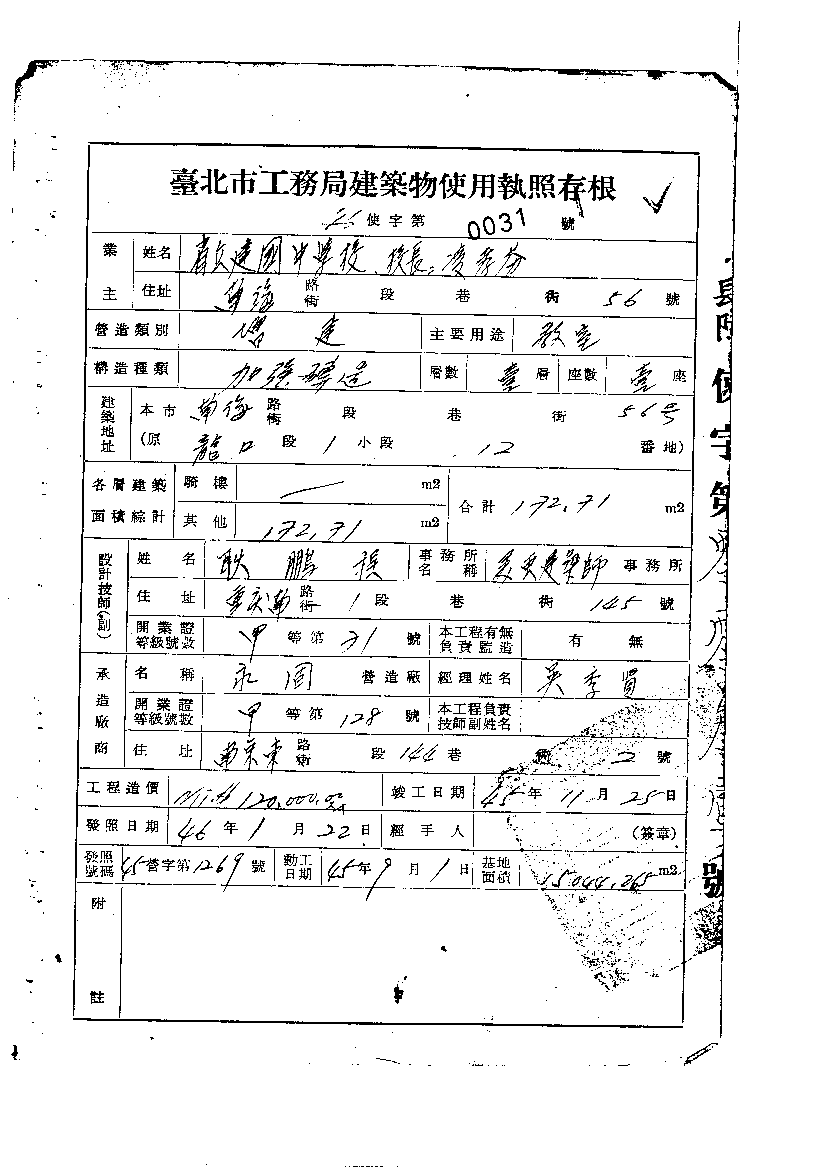 臺北市工務局建築物使用執照存根
使字第 0031 號
業主 姓名 省立建國中學校 校長
住址 南海 路街 段 巷 街 56 號
營造類別 增建 主要用途 教室
構造種類 加強磚造 層數 壹 層 座數 壹 座
建築地址 本市 南海 路街 段 巷 街 56号
(原 龍口 段 1 小段 12 番地)
各層建築面積綜計 騎樓 — m2 合計 172.71 m2
其他 172.71 m2
設計技師(副) 姓名 耿鵬程 事務所名稱 建築師 事務所
住址 重慶南 路街 1 段 巷 街 145 號
開業證等級號數 甲 等第 31 號 本工程有無負責監造 有 無
承造廠商 名稱 永固 營造廠 經理姓名 吳季
開業證等級號數 甲 等第 128 號 本工程負責技師副姓名
住址 南京東 路街 段 144 巷 2 號
工程造價 120,000.00 竣工日期 45 年 11 月 25 日
發照日期 46 年 1 月 22 日 經手人 (簽章)
發照號碼 45 營字第 1269 號 動工日期 45 年 9 月 1 日 基地面積 15,044.265 m2
附註
使字第
號